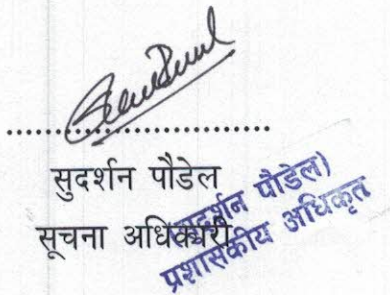 ..............................
सुदर्शन पौडेल
सूचना अधिकारी
(सुदर्शन पौडेल)
प्रशासकीय अधिकृत